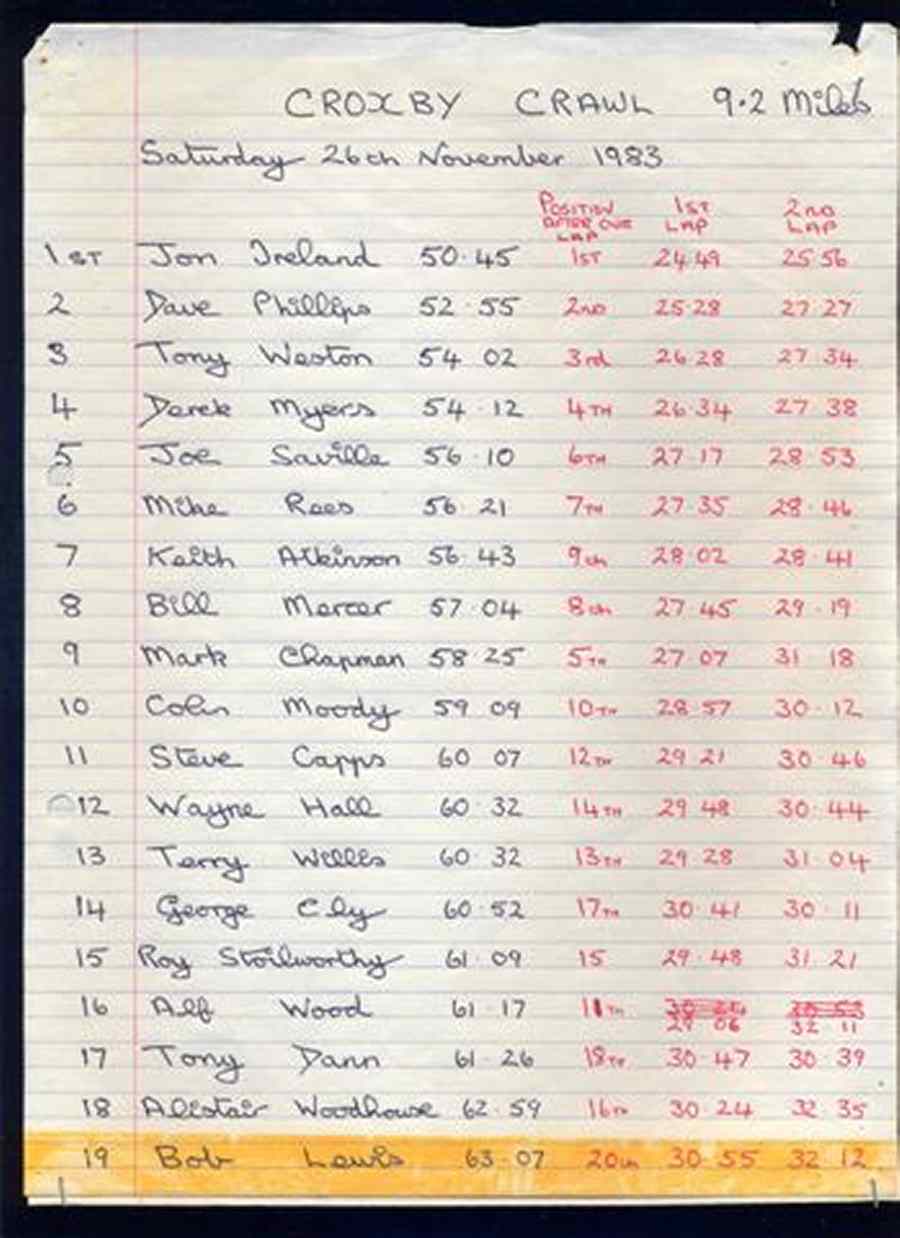 CROXBY CRAWL 9.2 Miles
Saturday 26th November 1983
POSITION AFTER ONE LAP 1ST LAP 2ND LAP
1ST Jon Ireland 50.45 1ST 24 49 25 56
2 Dave Phillips 52.55 2ND 25 28 27 27
3 Tony Weston 54 02 3rd 26 28 27 34
4 Derek Myers 54.12 4TH 26.34 27 38
5 Joe Saville 56.10 6TH 27 17 28 53
6 Mike Rees 56.21 7TH 27 35 28.46
7 Keith Atkinson 56.43 9th 28.02 28.41
8 Bill Mercer 57.04 8th 27 45 29.19
9 Mark Chapman 58.25 5TH 27 07 31 18
10 Colin Moody 59 09 10TH 28 57 30.12
11 Steve Capps 60 07 12TH 29 21 30.46
12 Wayne Hall 60.32 14TH 29 48 30.44
13 Terry Willis 60.32 13TH 29 28 31 04
14 George Ely 60.52 17TH 30.41 30.11
15 Roy Stoilworthy 61.09 15 29.48 31.21
16 Alf Wood 61.17 11TH
29 06 32 11
17 Tony Dann 61.26 18TH 30.47 30 39
18 Alistair Woodhouse 62.59 16TH 30.24 32 35
19 Bob Lewis 63.07 20th 30.55 32 12